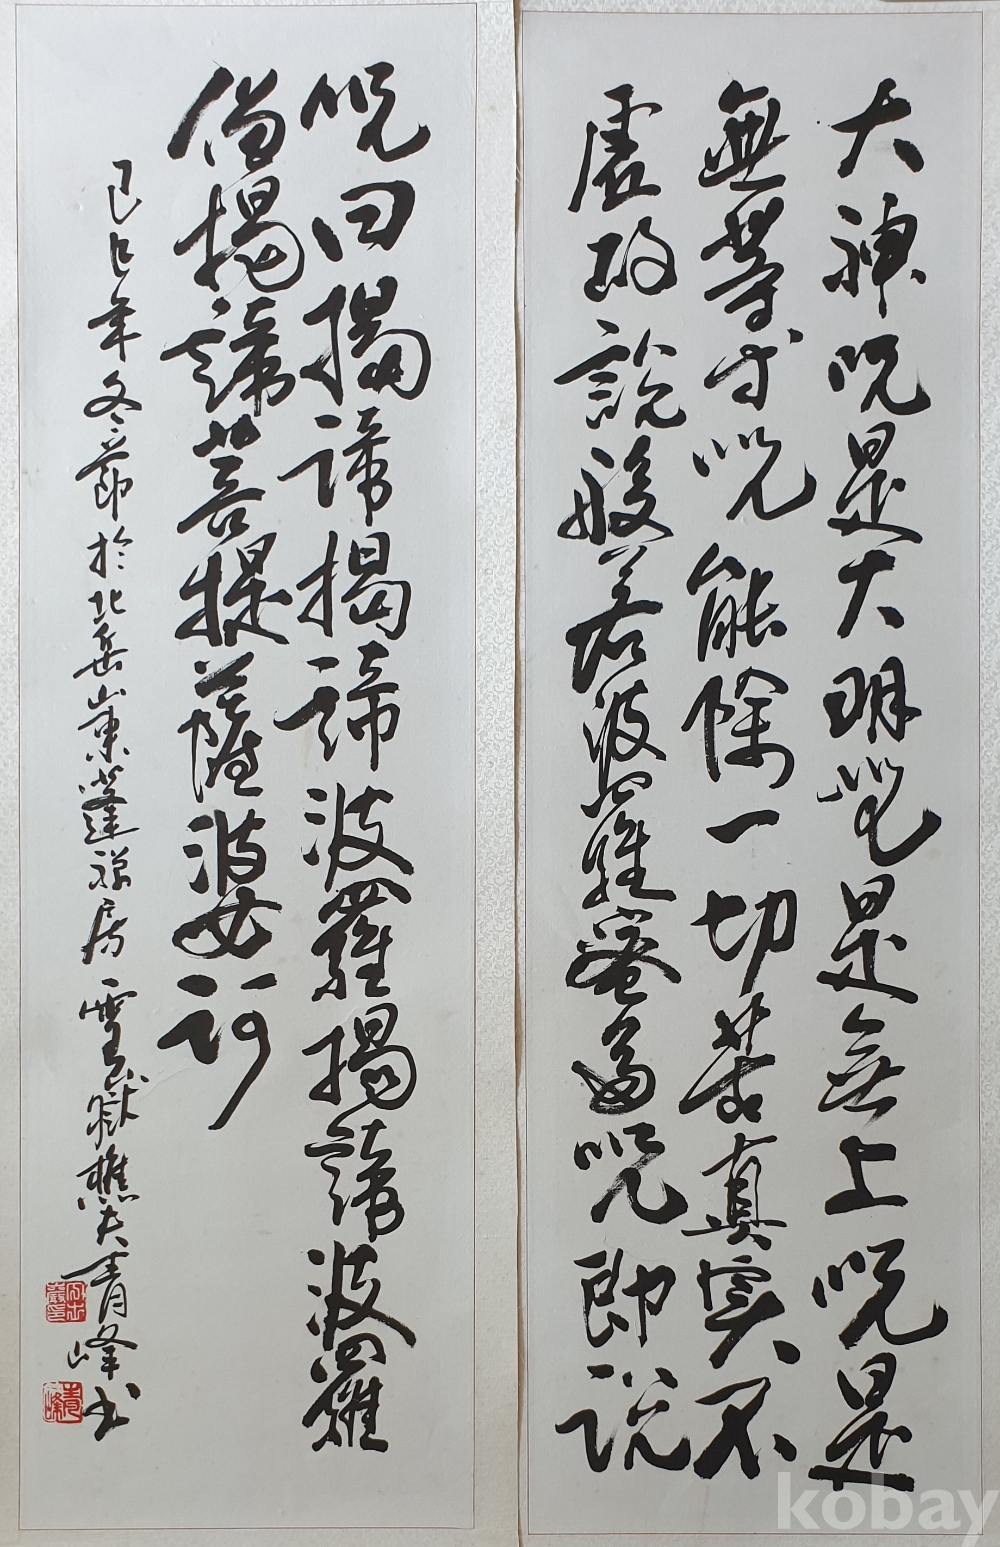 大神呪是大明呪是無上呪是
無等等呪能除一切苦真実不
虛故說般若波羅蜜多呪即說
呪曰揭諦揭諦波羅揭諦波羅
僧揭諦菩提薩婆訶
己巳年冬節於北岳山東蓬禪房 雪嶽樵夫青峰书
青峰
kobay